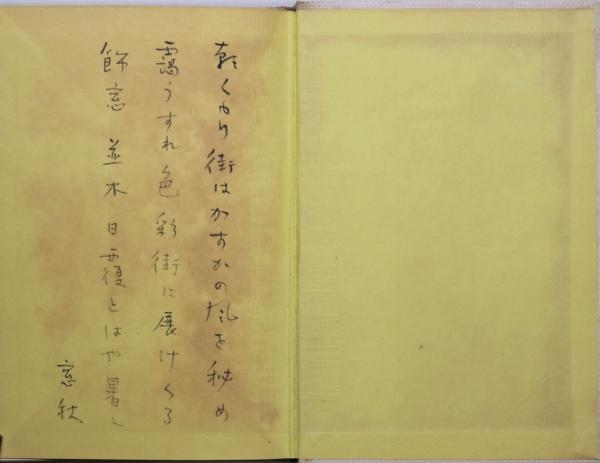 朝くもり街はかすかの風を秘め
靄うすれ色彩街に展けくる
飾窓 並木 日覆とはや暑し
窓秋